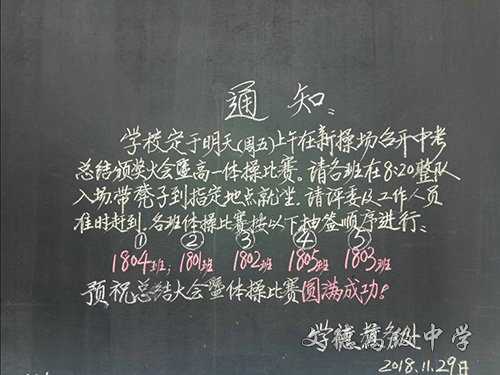 通知
学校定于明天(周五)上午在新操场召开中考
总结颁奖大会暨高一体操比赛。请各班在8:20整队
入场带凳子到指定地点就坐。请评委及工作人员
准时赶到。各班体操比赛按以下抽签顺序进行。
① ② ③ ④ ⑤
1804班; 1801班 1802班 1805班 1803班
预祝总结大会暨体操比赛圆满成功!
学
高级中学
2018.11.29日